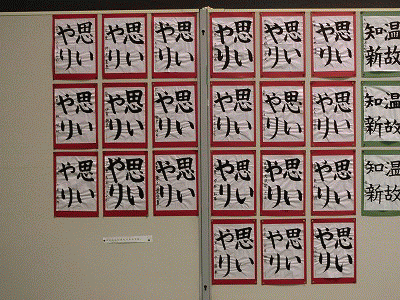 思い
やり
思い
やり
思い
やり
思い
やり
思い
やり
思い
やり
温故
知新
思い
やり
思い
やり
思い
やり
思い
やり
思い
やり
思い
やり
温故
知新
思い
やり
思い
やり
思い
やり
思い
やり
思い
やり
思い
やり
温故
知新
思い
やり
思い
やり
思い
やり